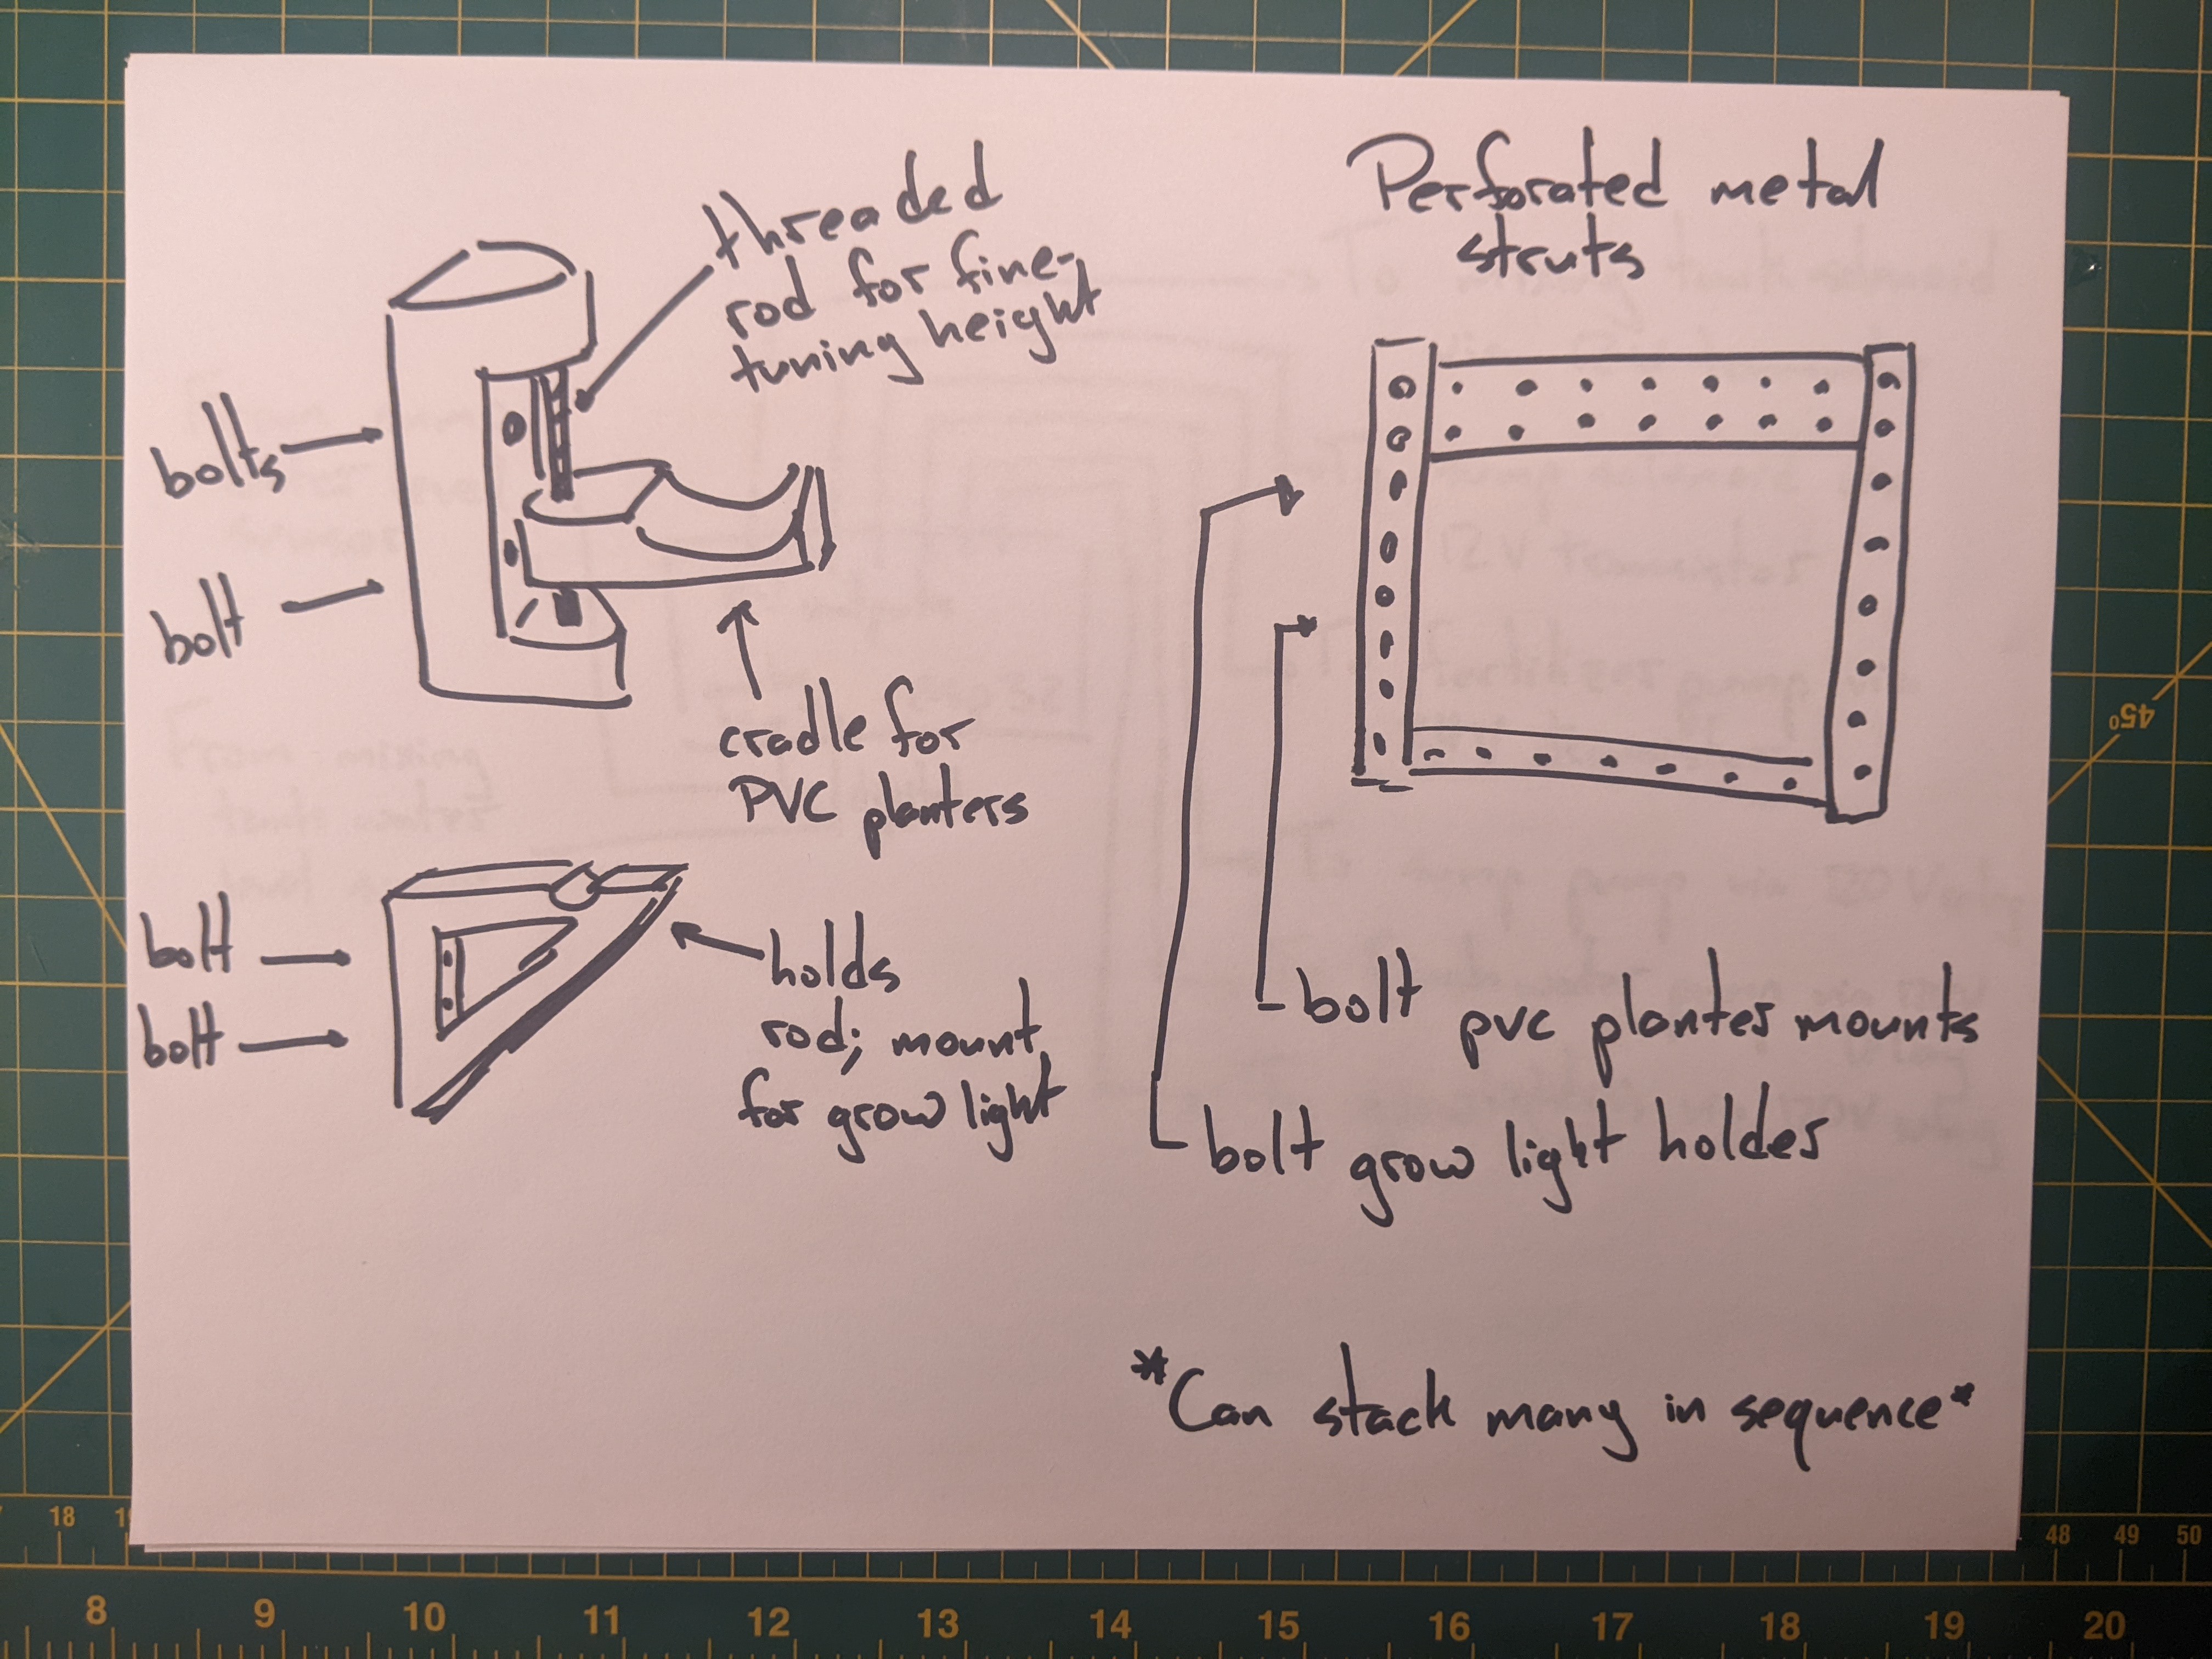 threaded
rod for fine-
tuning height
bolts
bolt
cradle for
PVC planters
bolt
bolt
holds
rod; mount
for grow light
Perforated metal
struts
bolt pvc plantes mounts
bolt grow light holdes
*Can stack many in sequence*
45°
18
48 49 50
8 9 10 11 12 13 14 15 16 17 18 19 20